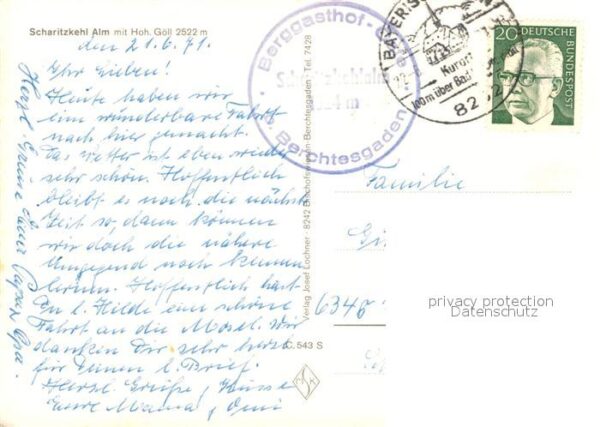 Scharitzkehl Alm mit Hoh. Göll 2522 m
den 21.6.71.
Ihr Lieben!
Heute haben wir
eine wunderbare Fahrt
nach hier gemacht.
Das Wetter ist eben wieder
sehr schön. Hoffentlich
bleibt es noch die nächste
Zeit so, dann können
wir doch die nähere
Umgegend noch kennen
lernen. Hoffentlich hast
Du l. Hilde eine schöne
Fahrt an die Mosel. Wir
danken Dir sehr herzl
für Deinen l. Brief.
Herzl Grüße, Küsse
Eure Mama, Omi
Herzl. Grüße Euer Papa, Opa.
Verlag Josef Lochner · 8242 Bischofswiesen Berchtesgaden · Tel. 7428
C.543 S
Berggasthof
Scharitzkehlalm
b. Berchtesgaden
BAYER.
Kurort
m über
82
20
DEUTSCHE
BUNDESPOST
Familie
privacy protection
Datenschutz